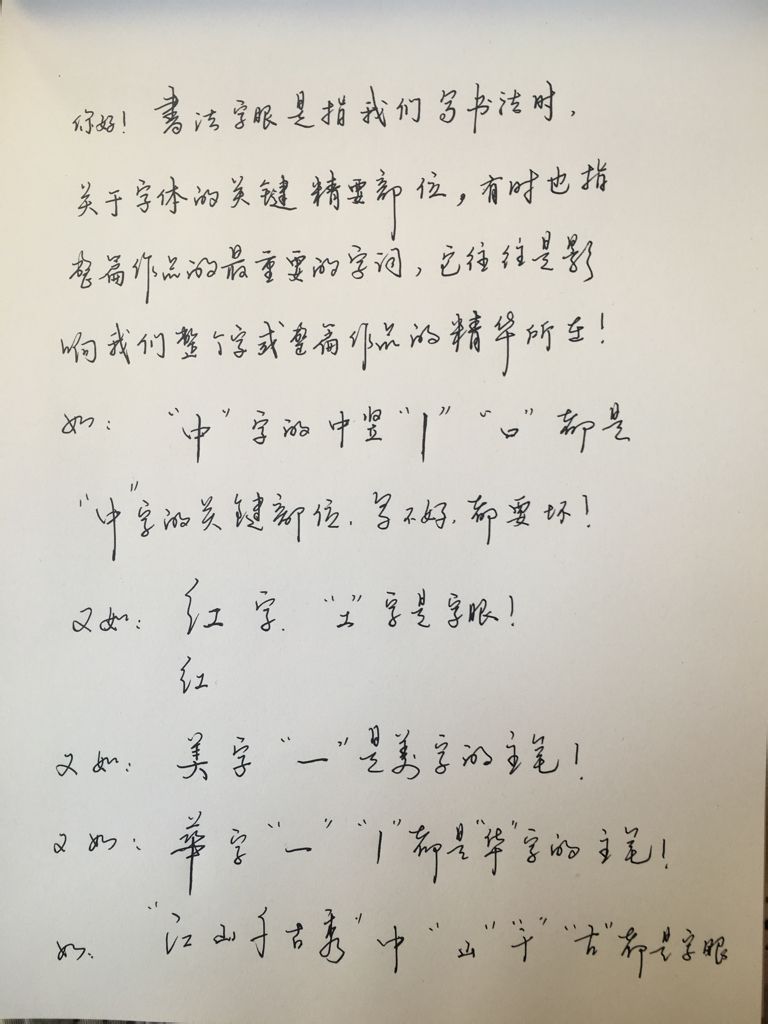 你好！書法字眼是指我们写书法时，
关于字体的关键精要部位，有时也指
整篇作品的最重要的字词，它往往是影
响我们整个字或整篇作品的精华所在！
如：“中”字的中竖“丨”“口”都是
“中”字的关键部位，写不好，都要坏！
又如：红字，“工”字是字眼！
红
又如：美字“一”是美字的主笔！
又如：華字“一”“丨”都是“华”字的主笔！
如：“江山千古秀”中“山”“千”“古”都是字眼